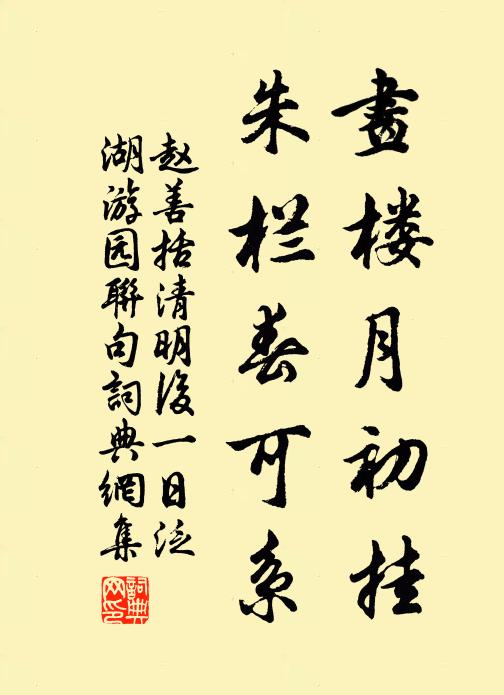 畫楼月初挂
朱栏春可系
赵善括清明後一日泛
湖游园聯句詞典網集
詞典
网印